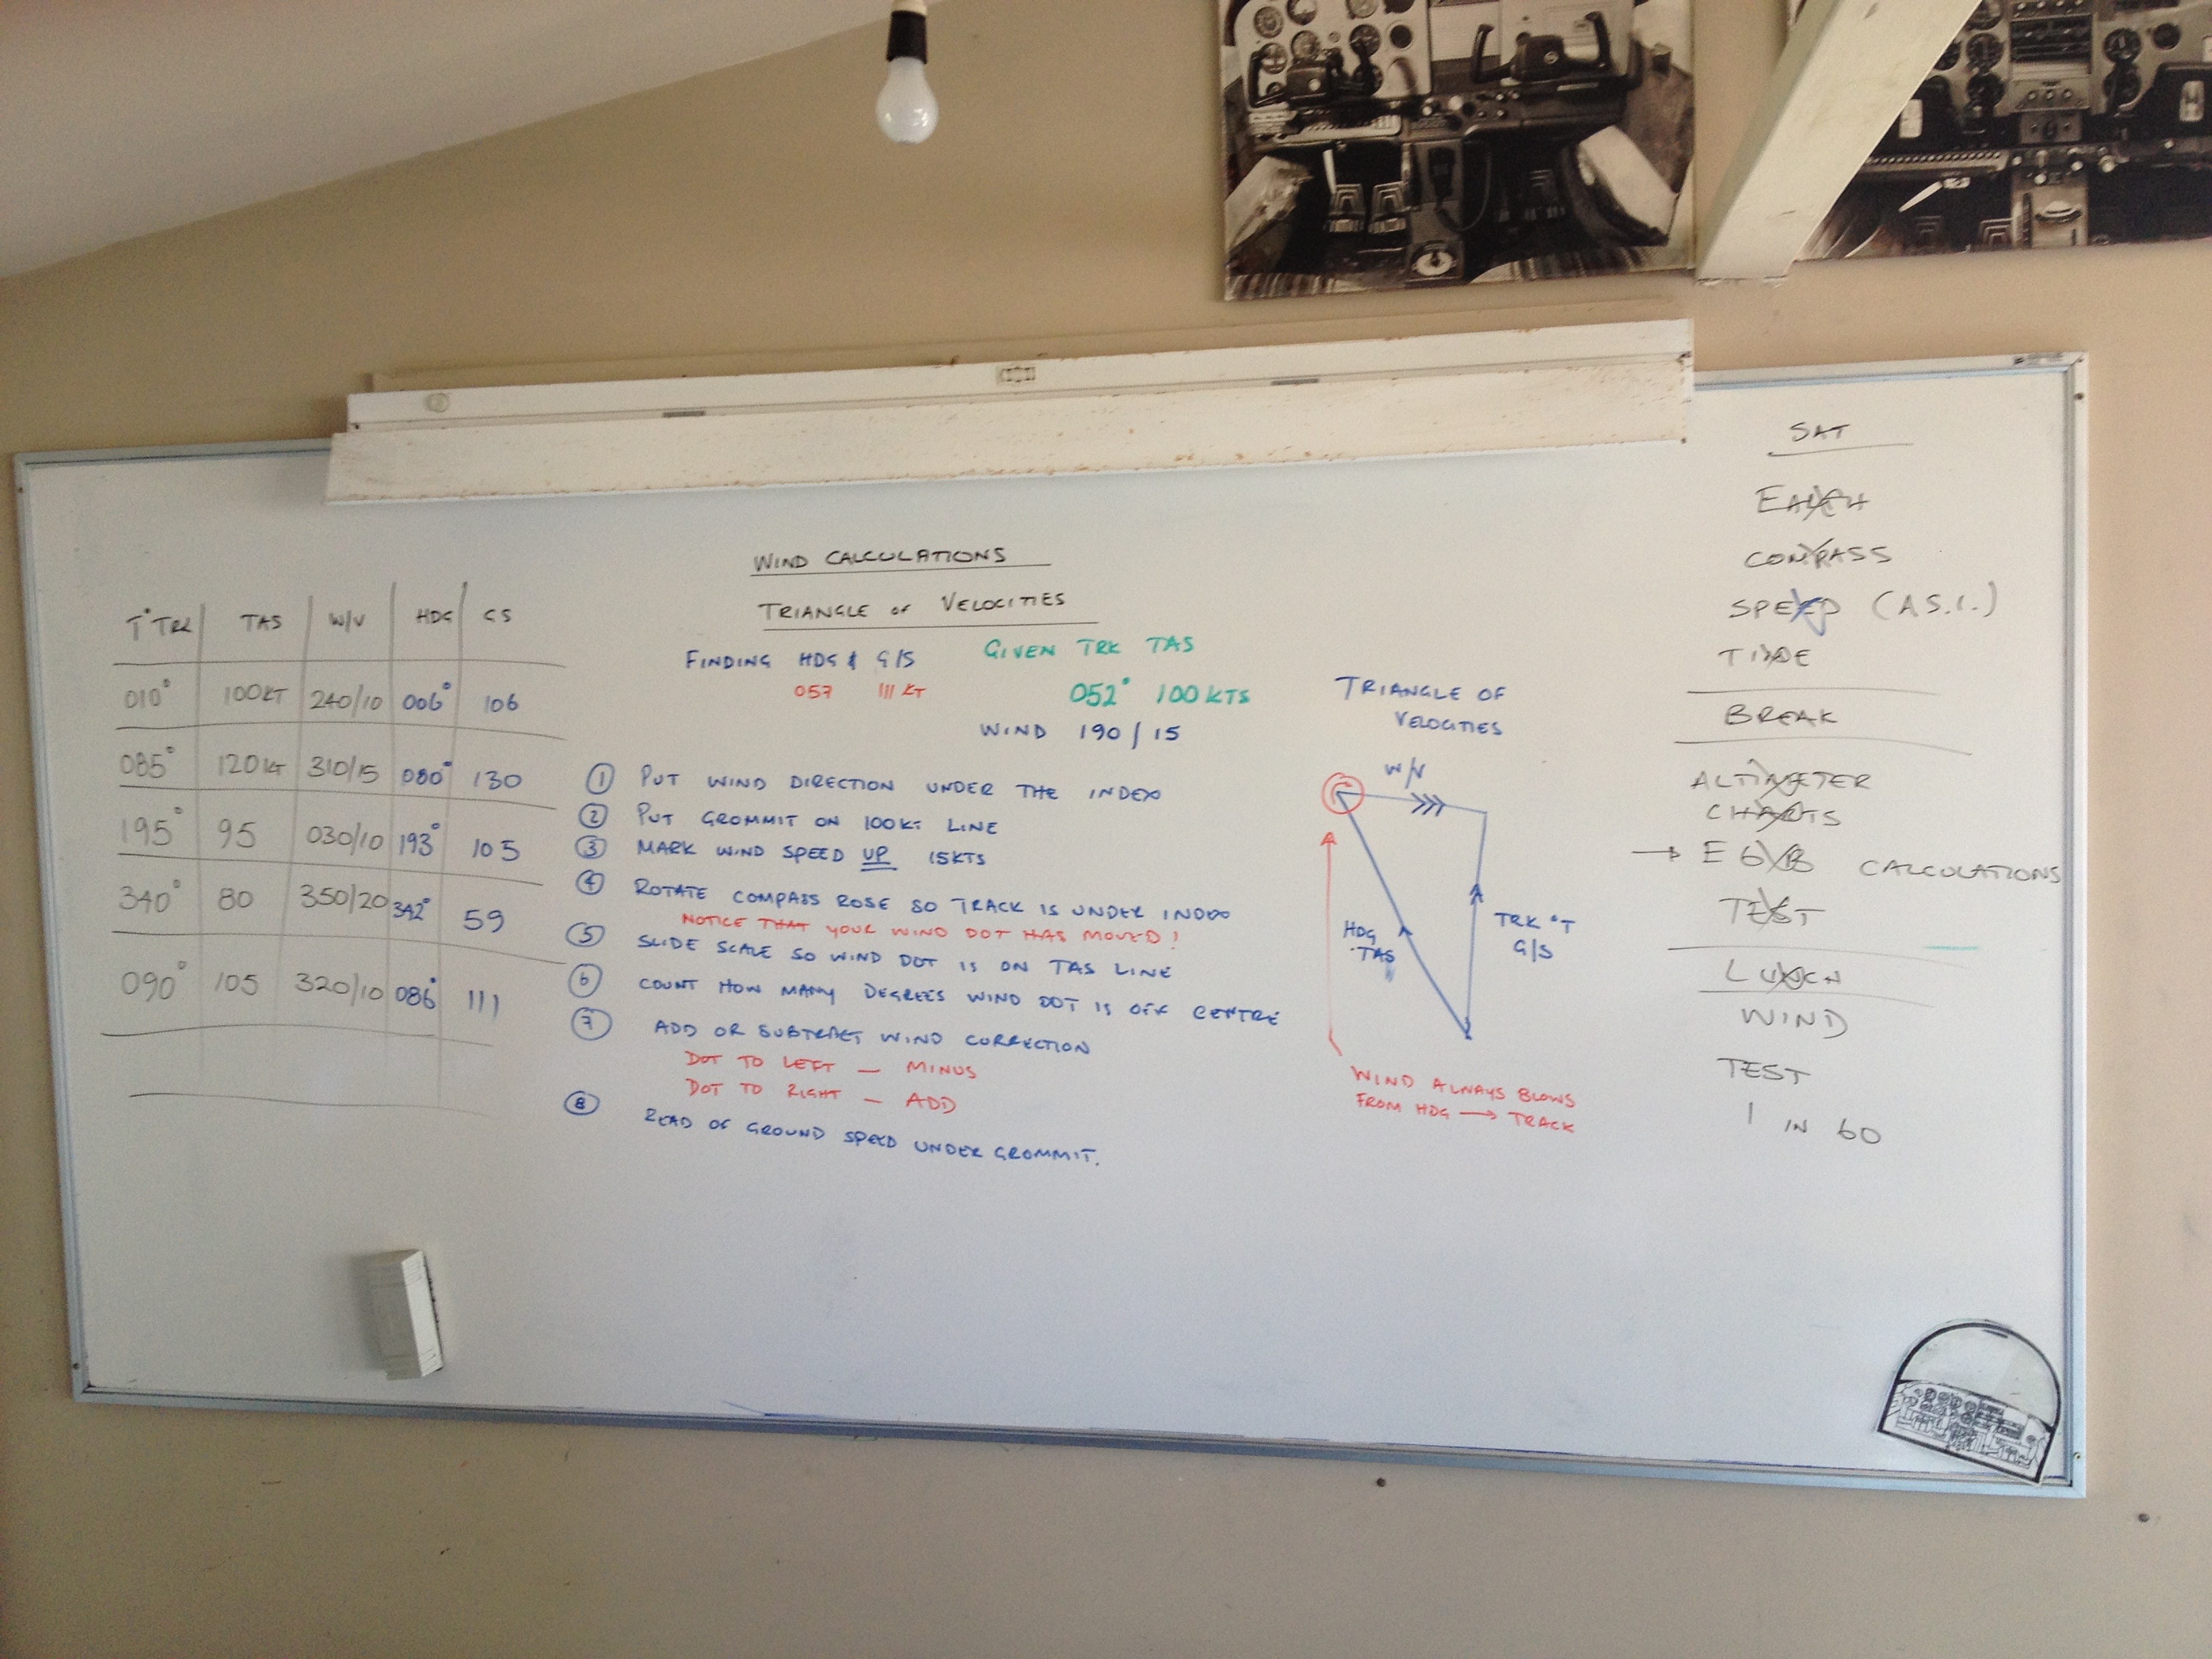 WIND CALCULATIONS
TRIANGLE OF VELOCITIES
FINDING HDG & G/S GIVEN TRK TAS
057 111 KT 052° 100 KTS
WIND 190/15
T° TRK TAS W/V HDG GS
010° 100KT 240/10 006° 106
085° 120KT 310/15 080° 130
195° 95 030/10 193° 105
340° 80 350/20 342° 59
090° 105 320/10 086° 111
① PUT WIND DIRECTION UNDER THE INDEX
② PUT GROMMIT ON 100KT LINE
③ MARK WIND SPEED UP 15KTS
④ ROTATE COMPASS ROSE SO TRACK IS UNDER INDEX
NOTICE THAT YOUR WIND DOT HAS MOVED!
⑤ SLIDE SCALE SO WIND DOT IS ON TAS LINE
⑥ COUNT HOW MANY DEGREES WIND DOT IS OFF CENTRE
⑦ ADD OR SUBTRACT WIND CORRECTION
DOT TO LEFT — MINUS
DOT TO RIGHT — ADD
⑧ READ OF GROUND SPEED UNDER GROMMIT.
TRIANGLE OF
VELOCITIES
W/V
HDG
TAS
TRK °T
G/S
WIND ALWAYS BLOWS
FROM HDG → TRACK
SAT
EARTH
COMPASS
SPEED (A.S.I.)
TIME
BREAK
ALTIMETER
CHARTS
→ E6B CALCULATIONS
TEST
LUNCH
WIND
TEST
1 IN 60